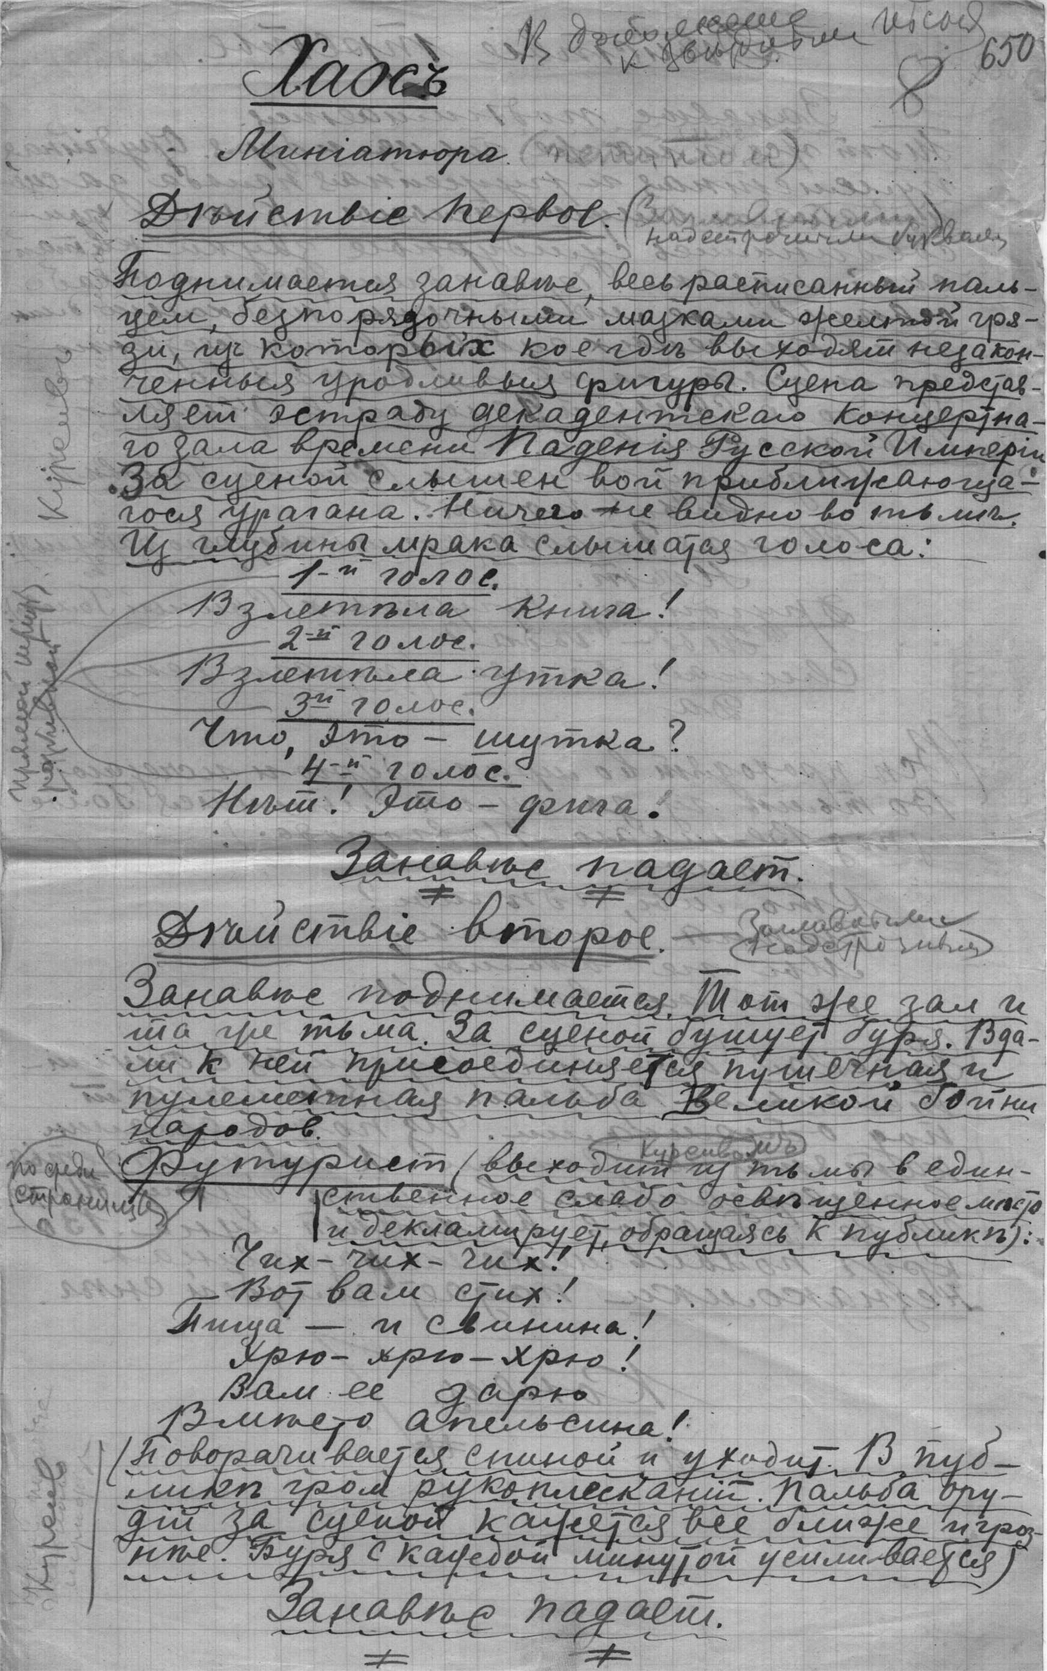 В
к
650
8
Хаосъ
Миніатюра.
Дѣйствіе первое.
(надстрочными буквами)
Поднимается занавѣс, весь расписанный паль-
цем, безпорядочными мазками желтой гря-
зи, из которых кое гдѣ выходят незакон-
ченныя уродливыя фигуры. Сцена представ-
ляет эстраду декадентскаго концертна-
го зала времени Паденія Русской Имперіи.
За сценой слышен вой приближающа-
гося урагана. Ничего не видно во тьмѣ.
Из глубины мрака слышатся голоса:
Курсивом
прямой шрифт
1-й голос.
Взлетѣла книга!
2-й голос.
Взлетѣла утка!
3-й голос.
Что, это – шутка?
4-й голос.
Нѣт! Это – фига.
Занавѣс падает.
Дѣйствіе второе.
Заглавными
надстрочными
Занавѣс поднимается. Тот же зал и
та же тьма. За сценой бушует буря. Вда-
ли к ней присоединяется пушечная и
пулеметная пальба Великой бойни
народов.
Курсивомъ
по среди
страницы
Футурист (выходит из тьмы в един-
ственное слабо освѣщенное мѣсто
и декламирует, обращаясь к публикѣ):
Чих – чих – чих!
Вот вам стих!
Пища – и свинина!
Хрю – хрю – хрю!
Вам ее дарю
Вмѣсто апельсина!
(Поворачивается спиной и уходит. В пуб-
ликѣ гром рукоплесканій. Пальба ору-
дій за сценой кажется все ближе и гроз-
нѣе. Буря с каждой минутой усиливается)
Курсив
Занавѣс падает.